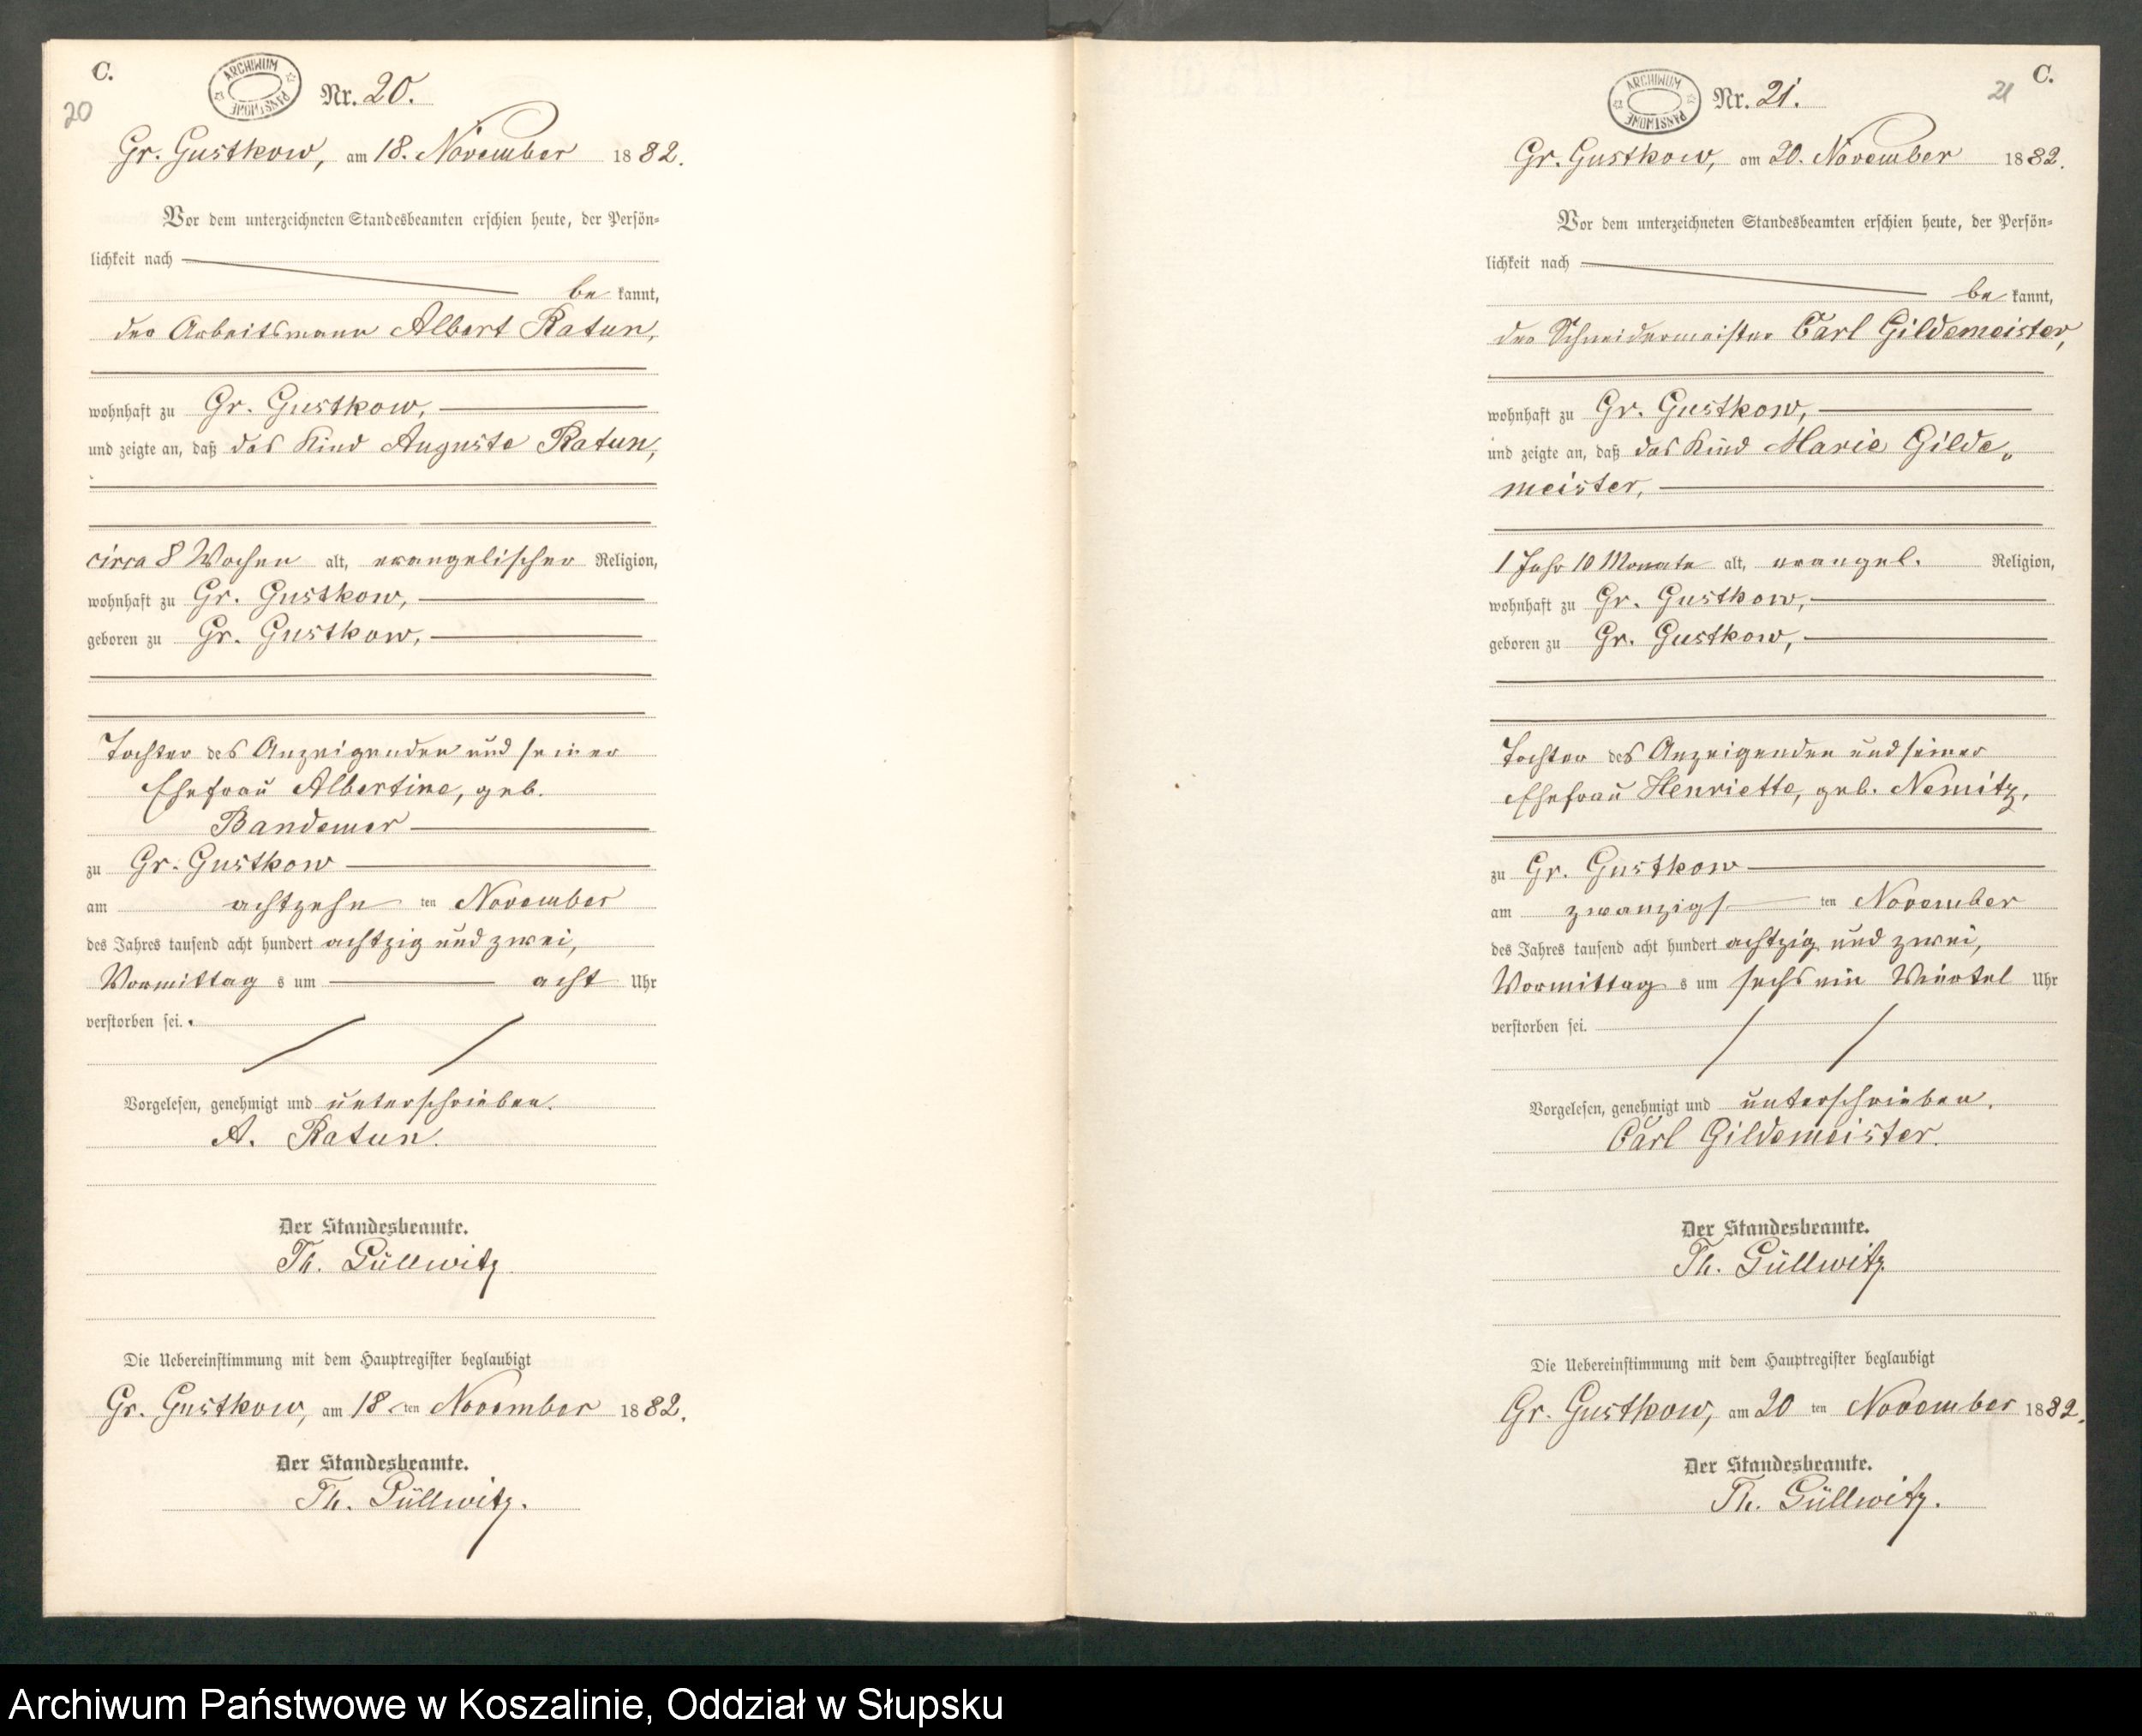 C.
20
ARCHIWUM PAŃSTWOWE
Nr. 20.
Gr. Gustkow, am 18. November 1882.
Vor dem unterzeichneten Standesbeamten erschien heute, der Persön-
lichkeit nach
be kannt,
der Arbeitsmann Albert Ratun,
wohnhaft zu Gr. Gustkow,
und zeigte an, daß das Kind Auguste Ratun,
circa 8 Wochen alt, evangelischer Religion,
wohnhaft zu Gr. Gustkow,
geboren zu Gr. Gustkow,
Tochter des Anzeigenden und seiner
Ehefrau Albertine, geb.
Bandemer
zu Gr. Gustkow
am achtzehn ten November
des Jahres tausend acht hundert achtzig und zwei,
Vormittag s um acht Uhr
verstorben sei.
Vorgelesen, genehmigt und unterschrieben.
A. Ratun.
Der Standesbeamte.
Th. Güllwitz
Die Uebereinstimmung mit dem Hauptregister beglaubigt
Gr. Gustkow, am 18 ten November 1882.
Der Standesbeamte.
Th. Güllwitz.
C.
21
ARCHIWUM PAŃSTWOWE
Nr. 21.
Gr. Gustkow, am 20. November 1882.
Vor dem unterzeichneten Standesbeamten erschien heute, der Persön-
lichkeit nach
be kannt,
der Schneidermeister Carl Gildemeister,
wohnhaft zu Gr. Gustkow,
und zeigte an, daß das Kind Marie Gilde-
meister,
1 Jahr 10 Monate alt, evangel. Religion,
wohnhaft zu Gr. Gustkow,
geboren zu Gr. Gustkow,
Tochter des Anzeigenden und seiner
Ehefrau Henriette, geb. Nemitz,
zu Gr. Gustkow
am zwanzigs ten November
des Jahres tausend acht hundert achtzig und zwei,
Vormittag s um sechs ein Viertel Uhr
verstorben sei.
Vorgelesen, genehmigt und unterschrieben.
Carl Gildemeister.
Der Standesbeamte.
Th. Güllwitz
Die Uebereinstimmung mit dem Hauptregister beglaubigt
Gr. Gustkow, am 20 ten November 1882.
Der Standesbeamte.
Th. Güllwitz.
Archiwum Państwowe w Koszalinie, Oddział w Słupsku